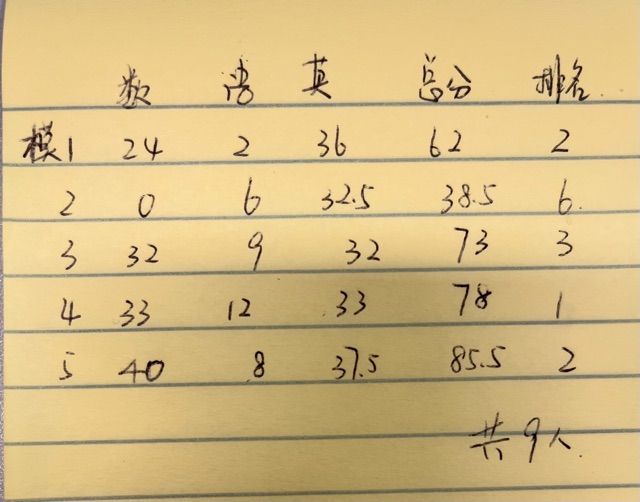 数 语 英 总分 排名
模1 24 2 36 62 2
2 0 6 32.5 38.5 6.
3 32 9 32 73 3
4 33 12 33 78 1
5 40 8 37.5 85.5 2
共9人